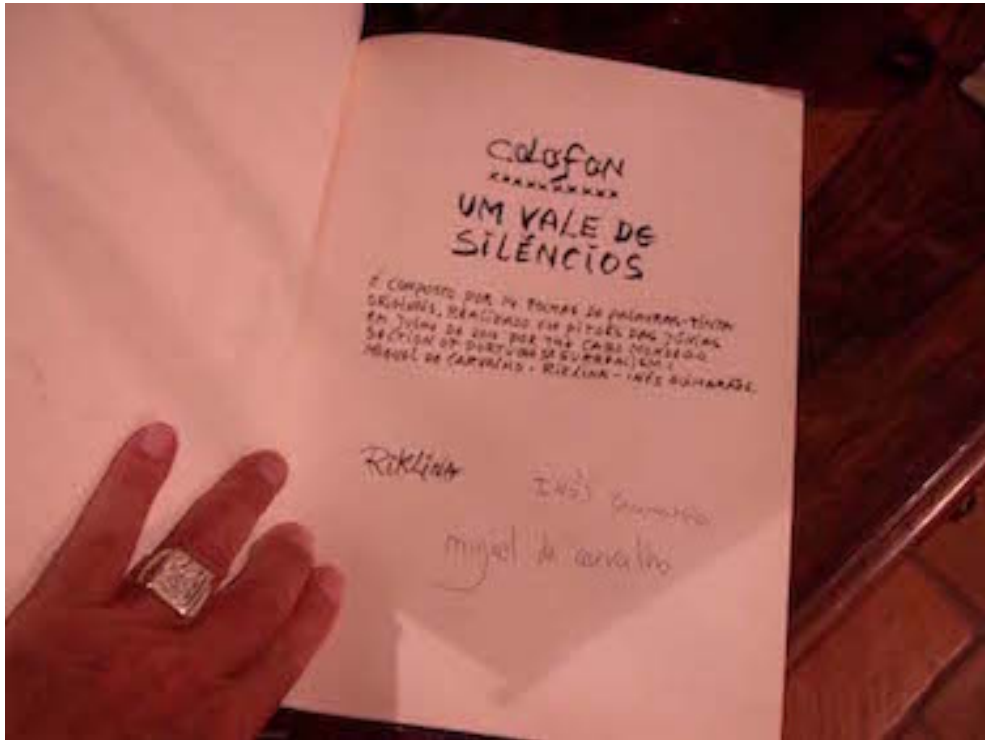 COLOFON
xxxxxxxxxx
UM VALE DE
SILÊNCIOS
É COMPOSTO POR 14 POEMAS DE PALAVRAS-TINTA
ORIGINAIS, REALIZADO EM PITÕES DAS JÚNIAS
EM JULHO DE POR THE CABO MONDEGO
SECTION OF PORTUGUESE SURREALISM:
MIGUEL DE CARVALHO - RIKLINA - INÊS GUIMARÃES
RIKLINA
INÊS Guimarães
miguel de carvalho